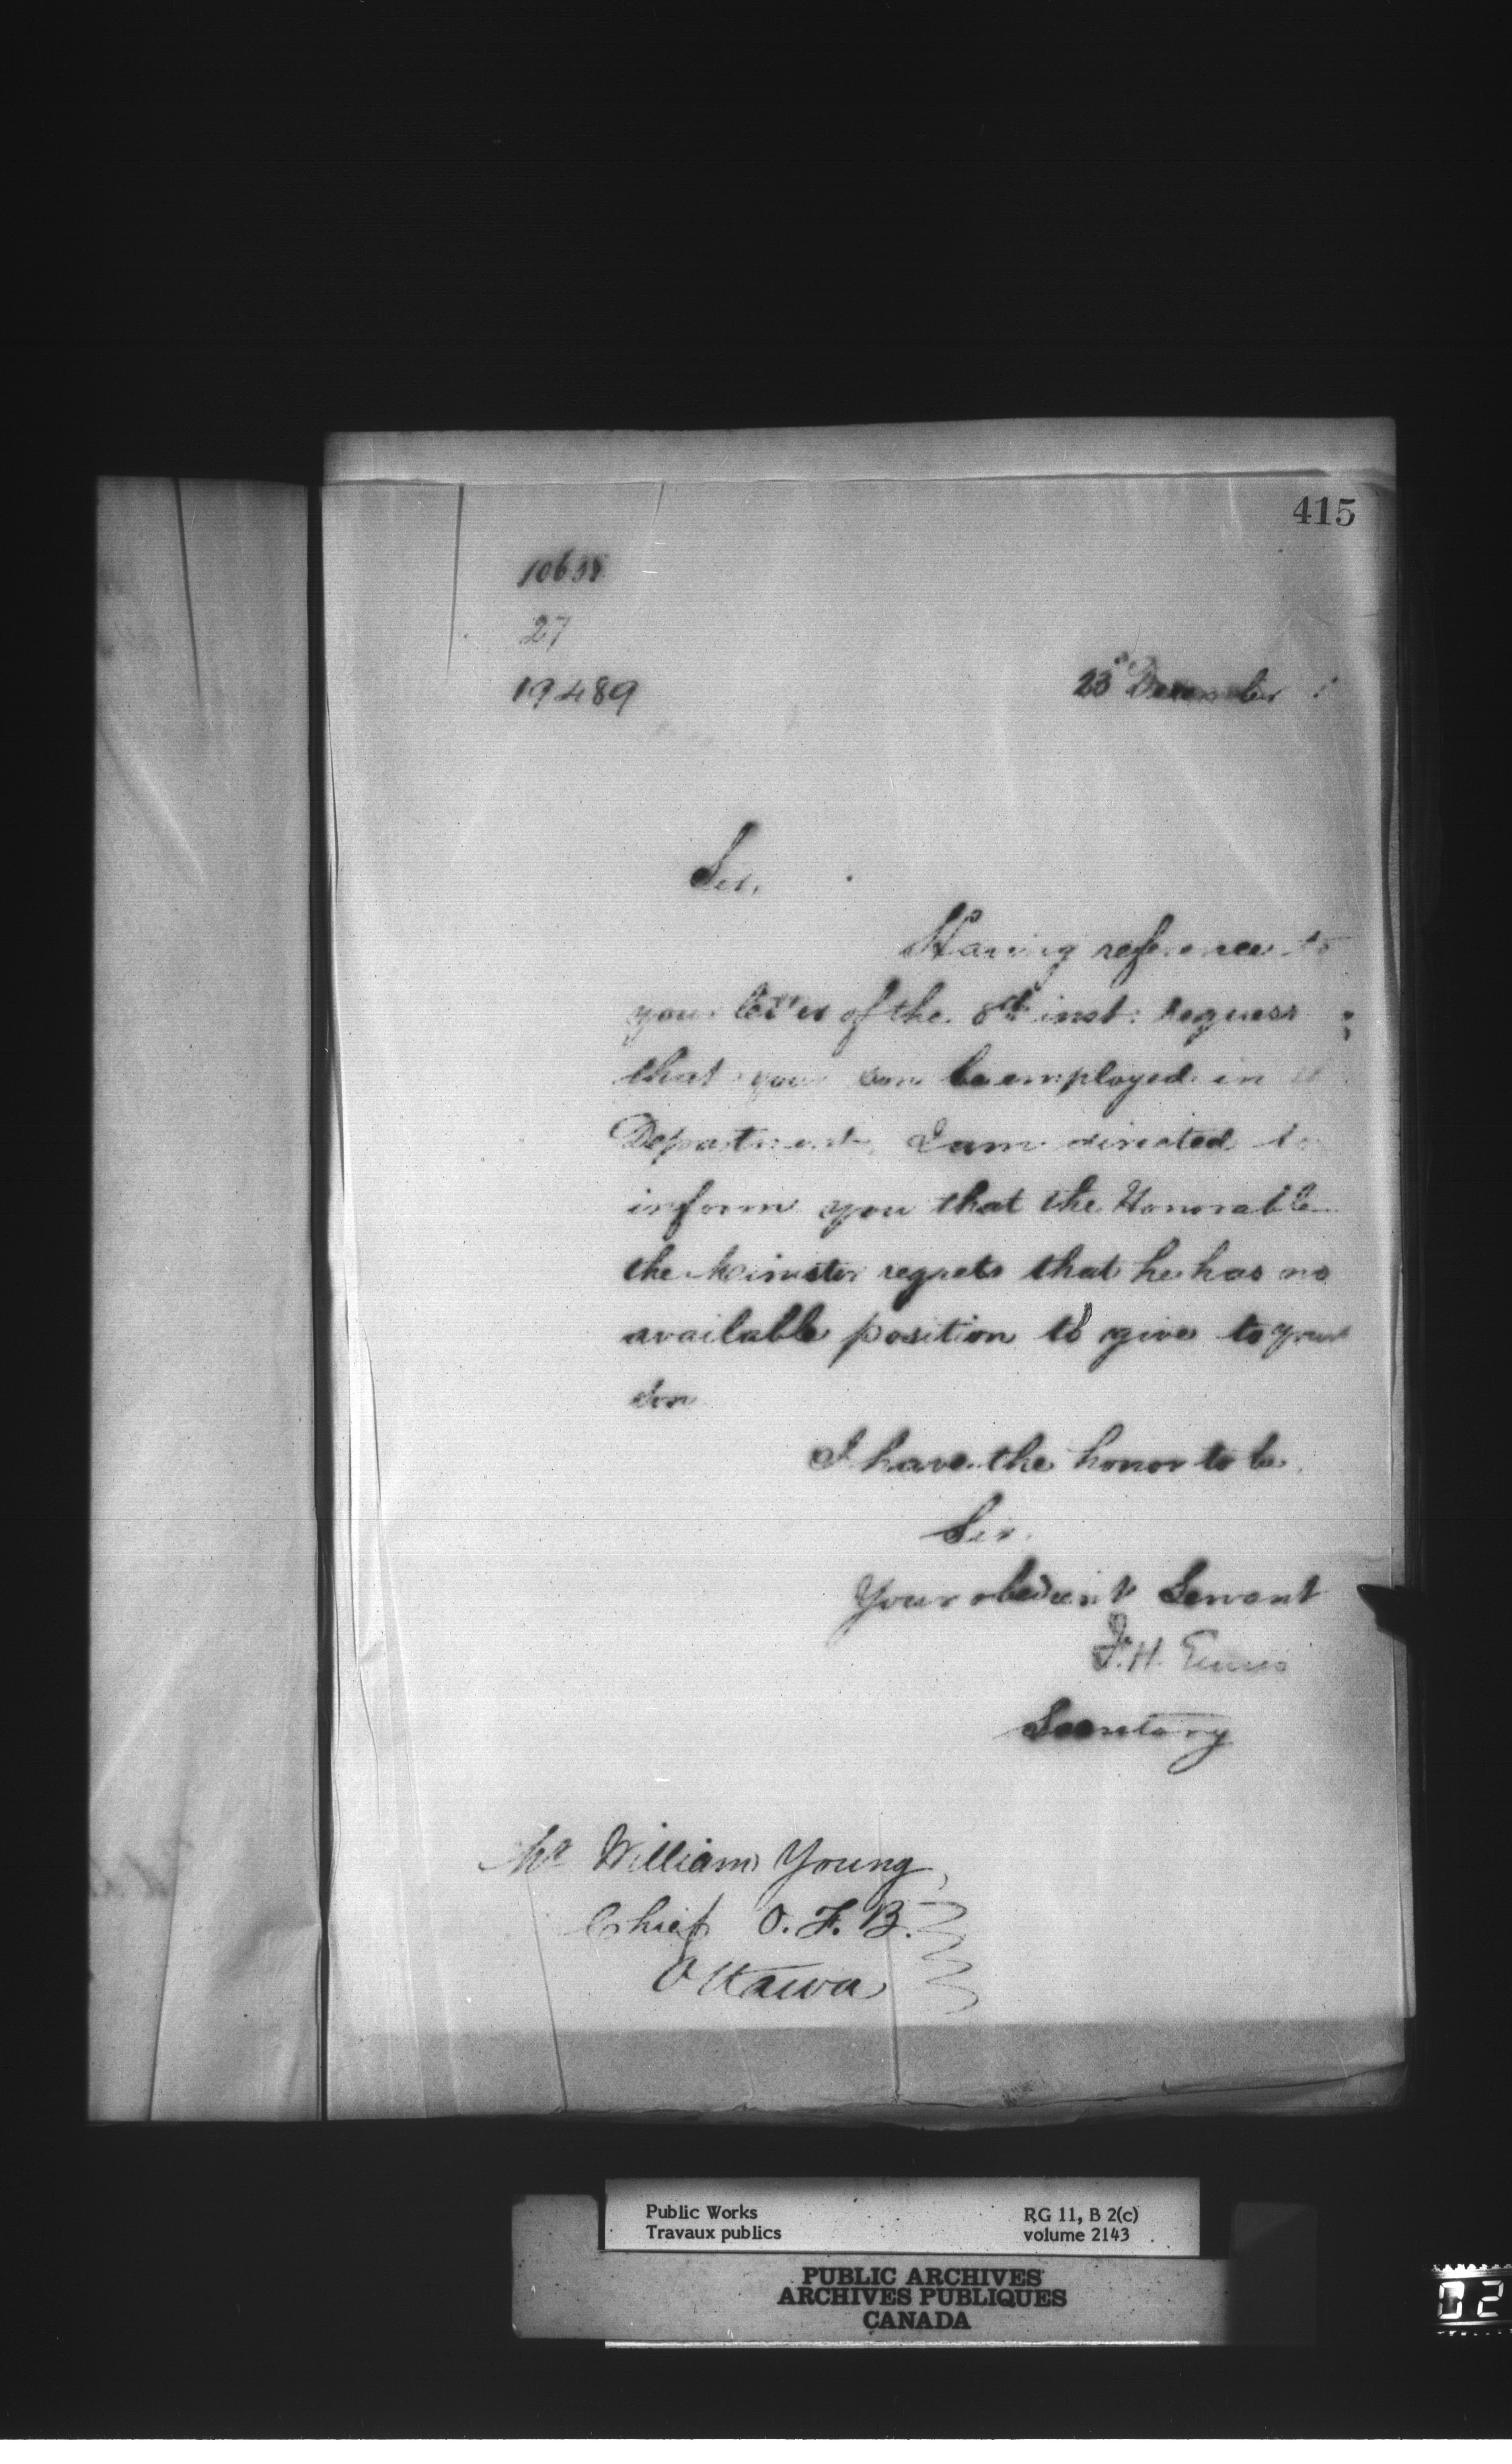 415
10638
27
19489
23d December
Sir,
Having reference to
your letter of the 8th inst: request
that your son be employed in
Department, I am directed to
inform you that the Honorable
the Minister regrets that he has no
available position to give to your
son
I have the honor to be,
Sir,
Your obedient Servant
F. H. Ennis
Secretary
Mr William Young,
Chief O. F. B.
Ottawa
Public Works
Travaux publics
RG 11, B 2(c)
volume 2143
PUBLIC ARCHIVES
ARCHIVES PUBLIQUES
CANADA
02